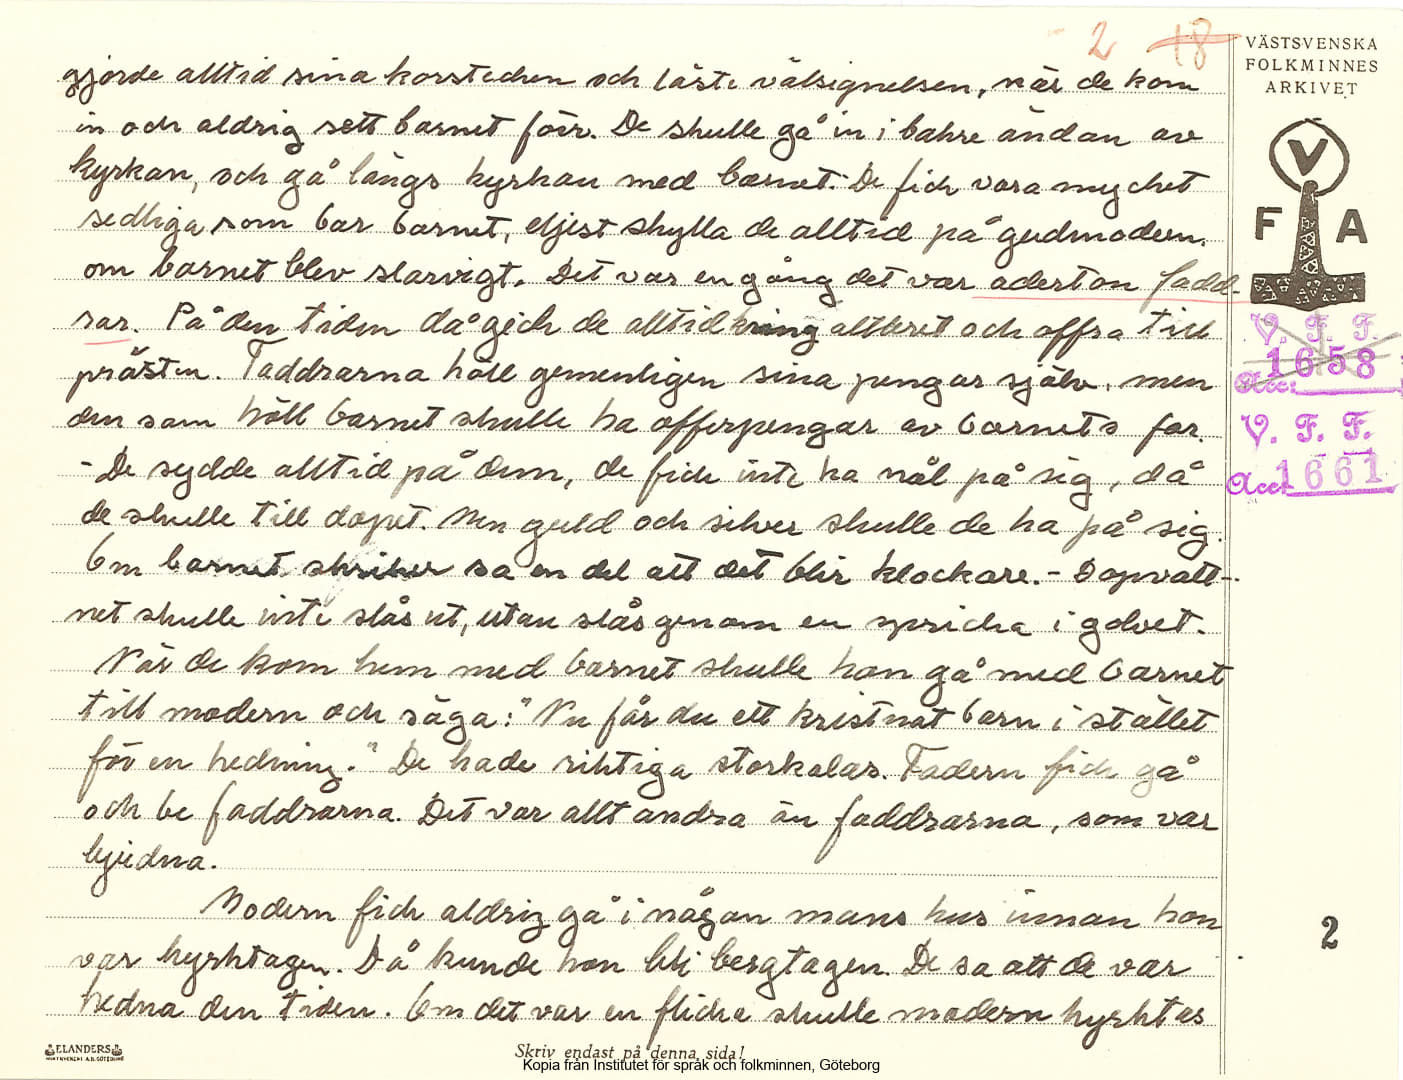 2 18
VÄSTSVENSKA
FOLKMINNES
ARKIVET
V
F A
V. F. F.
1658
Acc:
V. F. F.
Acc: 1661
gjorde alltid sina korstecken och läste välsignelsen, när de kom
in och aldrig sett barnet förr. De skulle gå in i bakre ändan av
kyrkan, och gå längs kyrkan med barnet. De fick vara mycket
sedliga som bar barnet, eljest skylla de alltid på gudmodern,
om barnet blev slarvigt. Det var en gång det var aderton fadd-
rar. På den tiden då gick de alltid kring altaret och offra till
prästen. Faddrarna höll gemenligen sina pengar själv, men
den som höll barnet skulle ha offerpengar av barnets far.
- De sydde alltid på dem, de fick inte ha nål på sig, då
de skulle till dopet. Men guld och silver skulle de ha på sig.
Om barnet skriker sa en del att det blir klockare. - Dopvatt-
net skulle inte slås ut, utan slås genom en spricka i golvet.
När de kom hem med barnet skulle hon gå med barnet
till modern och säga: "Nu får du ett kristnat barn i stället
för en hedning." De hade riktiga storkalas. Fadern fick gå
och be faddrarna. Det var allt andra än faddrarna, som var
bjudna.
Modern fick aldrig gå i någon mans hus innan hon
var kyrktagen. Då kunde hon bli bergtagen. De sa att de var
hedna den tiden. Om det var en flicka skulle modern kyrktas
2
ELANDERS
Skriv endast på denna sida!
Kopia från Institutet för språk och folkminnen, Göteborg